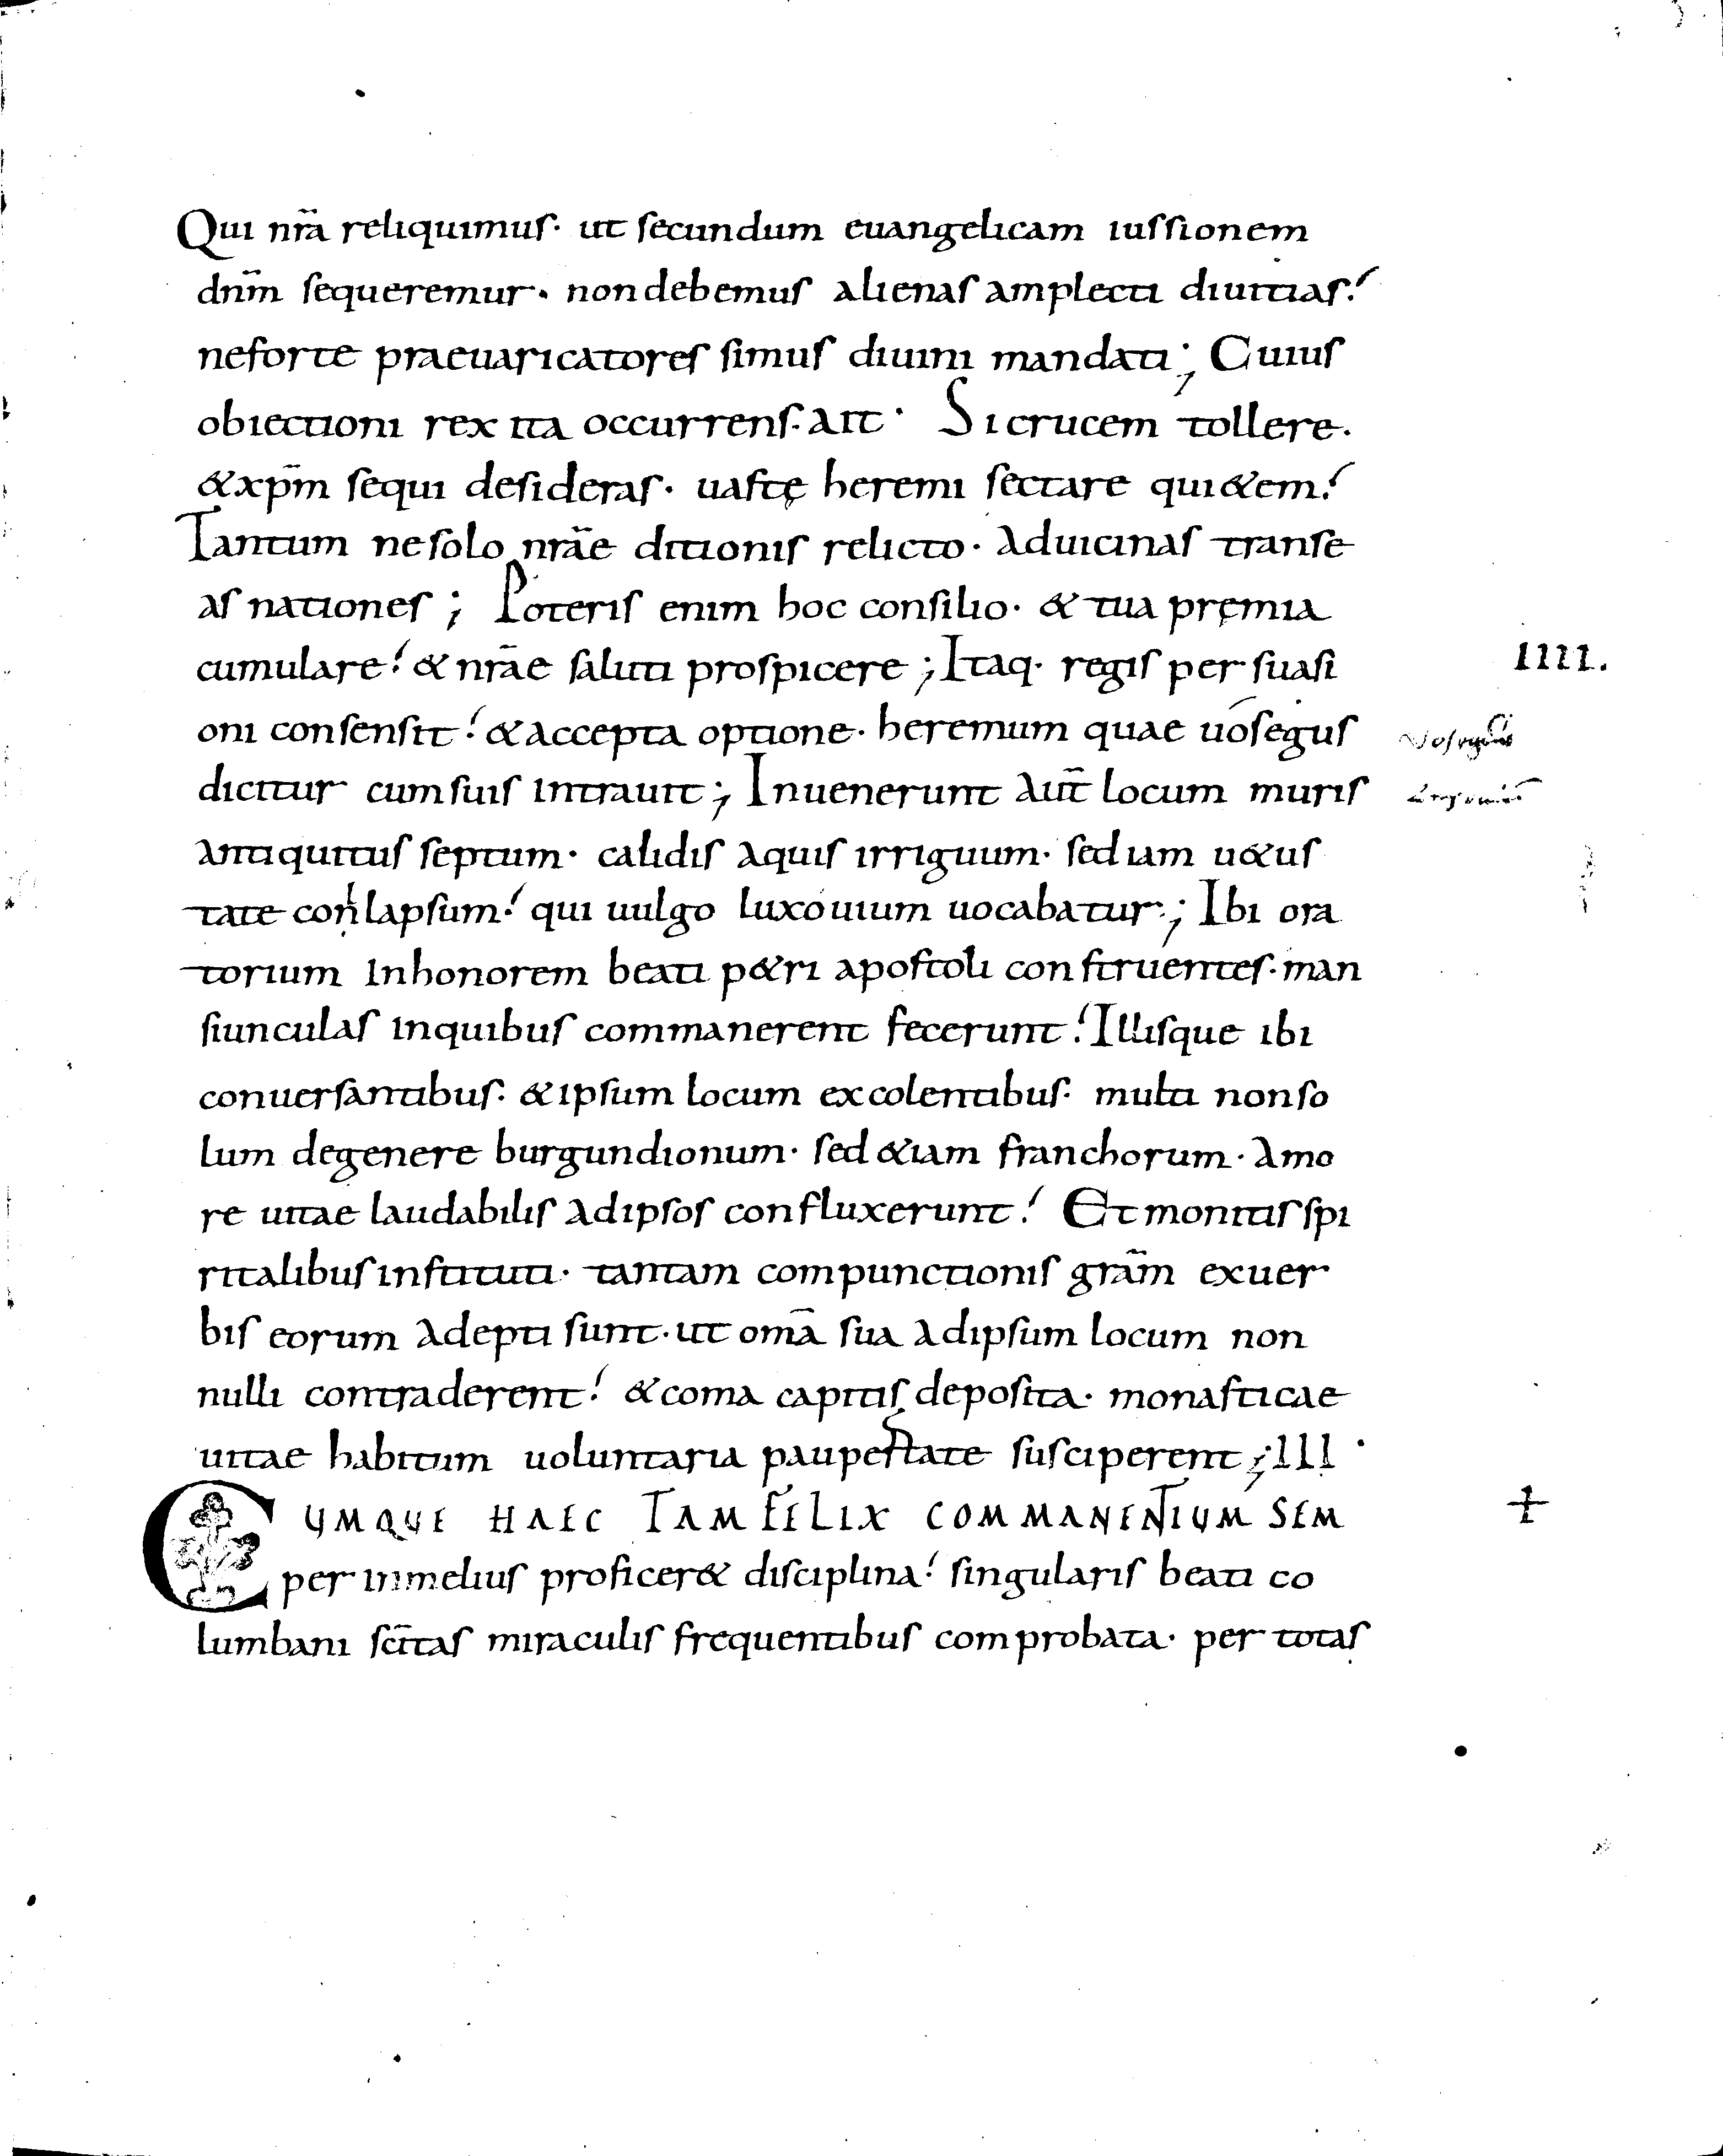 Qui nr̄a reliquimus· ut secundum euangelicam iussionem
dn̄m sequeremur· non debemus alienas amplecti diuitias·
ne forte praeuaricatores simus diuini mandati; Cuius
obiectioni rex ita occurrens· ait· Si crucem tollere·
& xp̄m sequi desideras· uastę heremi sectare qui&em·
IIII.
Tantum ne solo nr̄ae ditionis relicto· ad uicinas transe
as nationes; Poteris enim hoc consilio· & tua pręmia
cumulare· & nr̄ae saluti prospicere; Itaq· regis persuasi
oni consensit· & accepta optione· heremum quae uosegus
dicitur cum suis intrauit; Inuenerunt aut̄ locum muris
antiquitus septum· calidis aquis irriguum· sed iam u&us
tate conlapsum· qui uulgo luxouium uocabatur; Ibi ora
torium in honorem beati p&ri apostoli construentes· man
siunculas in quibus commanerent fecerunt· Illisque ibi
conuersantibus· & ipsum locum excolentibus· multi non so
lum de genere burgundionum· sed &iam franchorum· amo
re uitae laudabilis ad ipsos confluxerunt· Et monitis spi
ritalibus instituti· tantam compunctionis gr̄am ex uer
bis eorum adepti sunt· ut om̄a sua ad ipsum locum non
nulli contraderent· & coma capitis deposita· monasticae
uitae habitum uoluntaria paupertate susciperent; III·
CUMQUE HAEC TAM FELIX COMMANENTIUM SEM
per in melius proficer& disciplina· singularis beati co
lumbani sc̄itas miraculis frequentibus comprobata· per totas